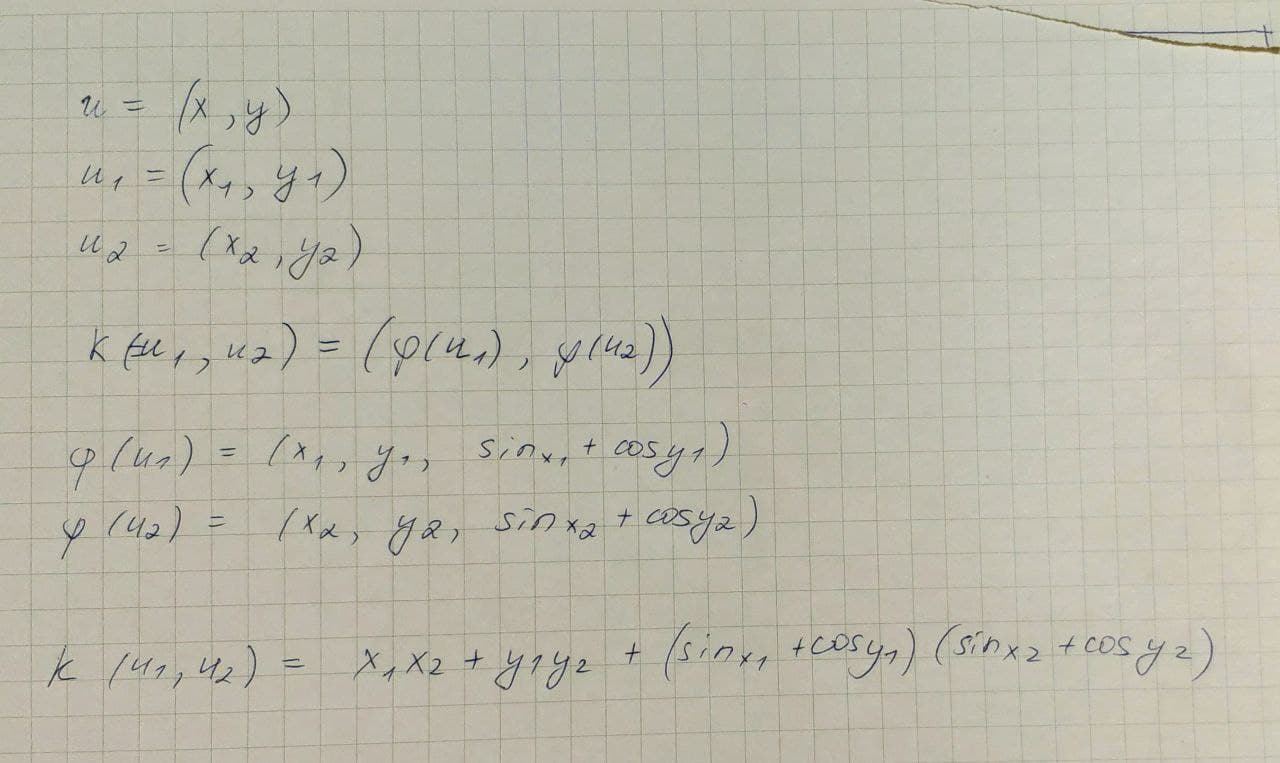 u = (x, y)
u₁ = (x₁, y₁)
u₂ = (x₂, y₂)
k(u₁, u₂) = (φ(u₁), φ(u₂))
φ(u₁) = (x₁, y₁, sin x₁ + cos y₁)
φ(u₂) = (x₂, y₂, sin x₂ + cos y₂)
k(u₁, u₂) = x₁x₂ + y₁y₂ + (sin x₁ + cos y₁)(sin x₂ + cos y₂)